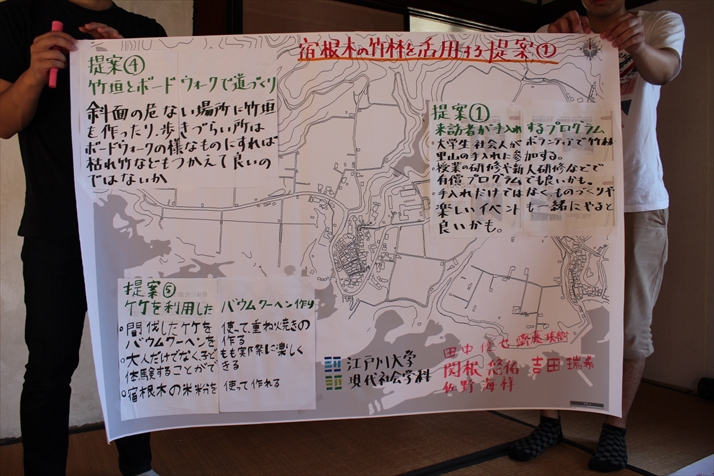 宿根木の竹林を活用する提案①
提案④
竹垣とボードウォークで道づくり
斜面の危ない場所に竹垣
も作ったり、歩きづらい所は
ボードウォークの様なものにすれば
枯れ竹などもつかえて良いの
ではないか
提案①
来訪者が手入れするプログラム
・大学生社会人がボランティアで竹林
里山の手入れに参加する。
・授業の研修や新人研修などで
有償プログラムでも良いかも。
・手入れだけではなくものづくりや
楽しいイベントも一緒にやると
良いかも。
提案⑤
竹を利用したバウムクーヘン作り
・間伐した竹を使って、重ね焼きの
バウムクーヘンを作る
・大人だけでなく子どもも実際に楽しく
体験することができる
・宿根木の米粉を使って作れる
江戸川大学
現代社会学科
田中
関根 悠佑 吉田 瑞希
佐野 海祥